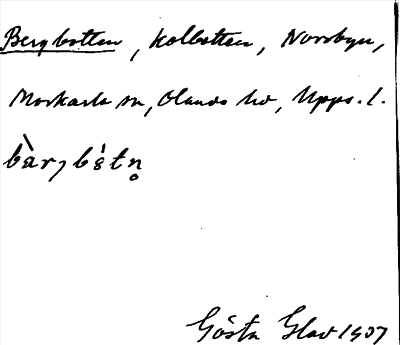 Bergbotten, Kolbotten, Norrbyn,
Morkarla sn, Olands hd, Upps. l.
bàrȷbɞ́tn̥
Gösta Glav 1907